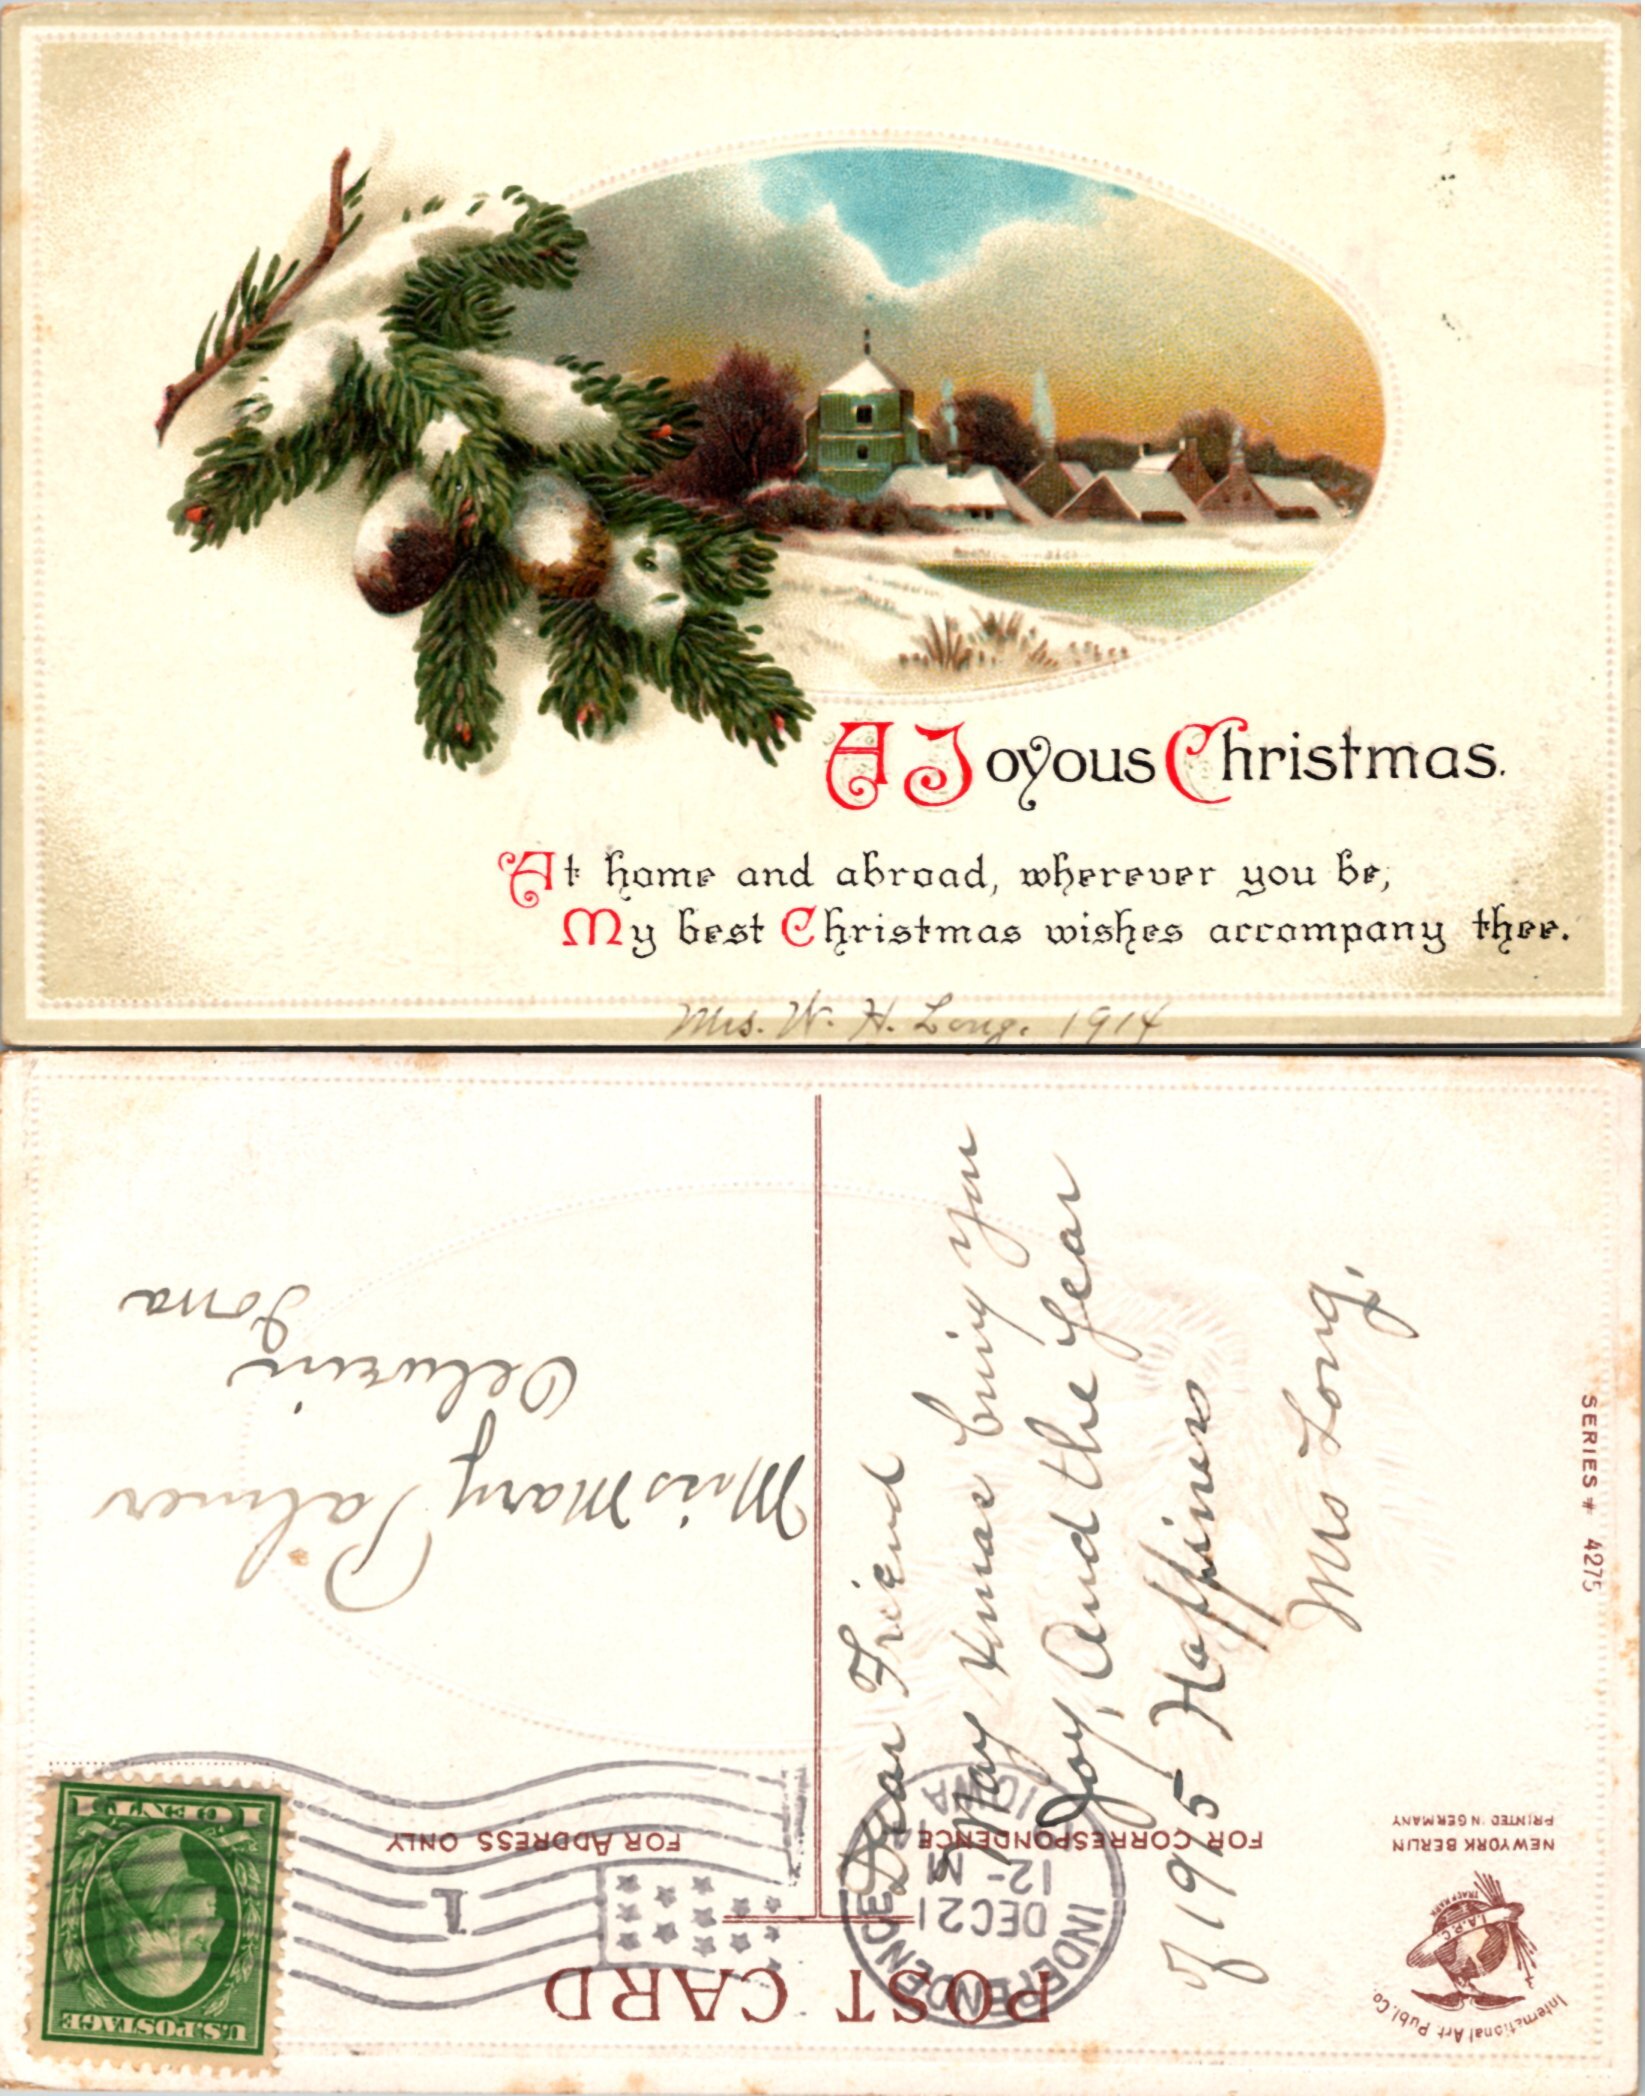 A Joyous Christmas.
At home and abroad, wherever you be,
My best Christmas wishes accompany thee.
Mrs. W. H. Long. 1914
POST CARD
FOR CORRESPONDENCE
FOR ADDRESS ONLY
International Art Publ. Co.
I.A.P.C.
TRADE MARK
NEW YORK BERLIN
PRINTED IN GERMANY
SERIES # 4275
INDEPENDENCE
DEC 21
12-M
IOWA
1
U.S. POSTAGE
1 CENT 1
Dear Friend
May Xmas bring you
Joy, And the Year
of 1915 Happiness
Mrs Long.
Miss Mary Palmer
Oelwein
Iowa